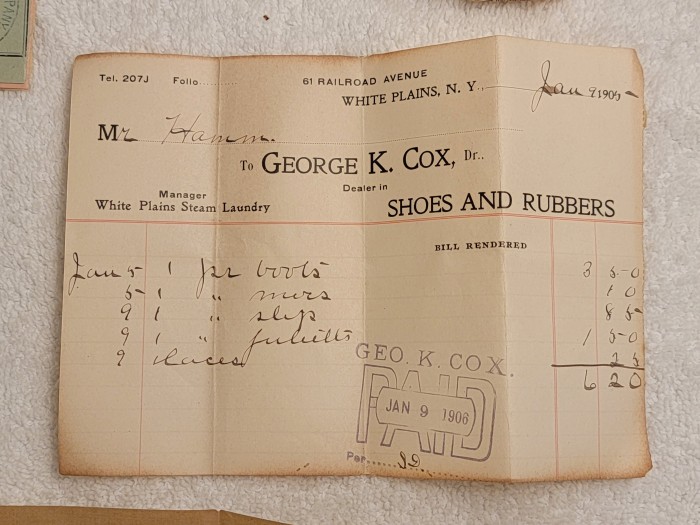 MPANY
Tel. 207J Folio.......... 61 RAILROAD AVENUE
WHITE PLAINS, N. Y., Jan 9 1905
Mr Hamm.
To GEORGE K. COX, Dr..
Manager Dealer in
White Plains Steam Laundry SHOES AND RUBBERS
BILL RENDERED
Jan 5 1 pr boots 3 50
5 1 " 10
9 1 " slip 85
9 1 " julietts 1 50
9 laces 25
6 20
GEO. K. COX.
PAID
JAN 9 1906
Per